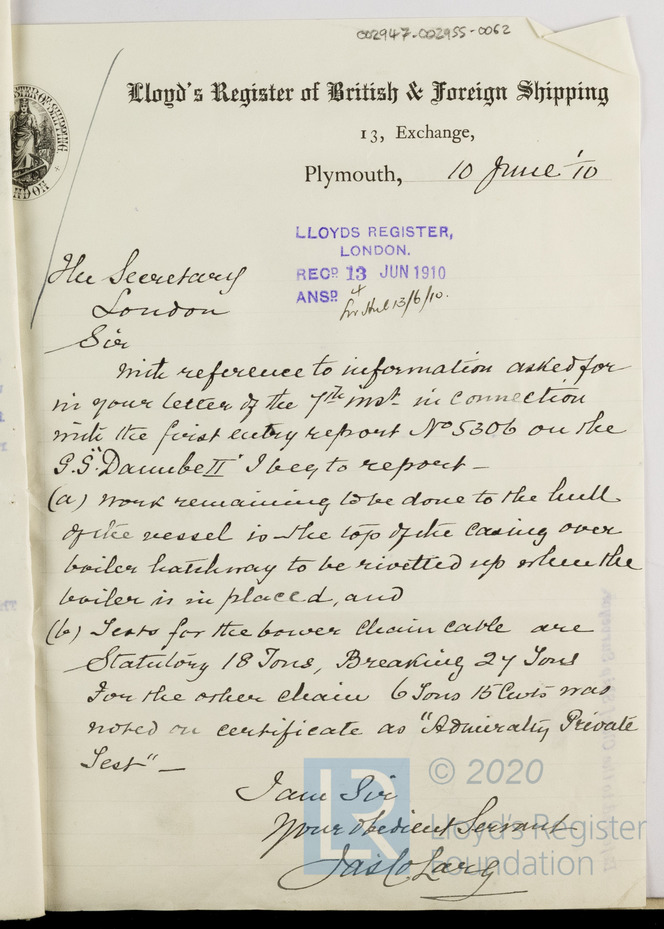 002947-002955-0062
Lloyd's Register of British & Foreign Shipping
13, Exchange,
Plymouth, 10 June '10
LLOYDS REGISTER,
LONDON.
RECD. 13 JUN 1910
ANSD. 13/6/10.
The Secretary
London
Sir
With reference to information asked for
in your letter of the 7th inst. in connection
with the first entry report No 5306 on the
S.S. "Danube II" I beg to report —
(a) Work remaining to be done to the hull
of the vessel is the top of the casing over
boiler hatchway to be rivetted up when the
boiler is in placed, and
(b) Tests for the bower chain cable are
Statutory 18 Tons, Breaking 27 Tons
For the other chain 6 Tons 15 Cwts was
noted on certificate as "Admiralty Private
Test" —
I am Sir
Your obedient Servant
© 2020
LR
Lloyd's Register
Foundation